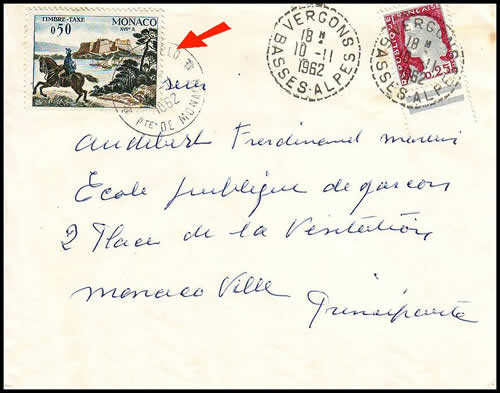 TIMBRE-TAXE MONACO
0,50 XVIᵉ S.
VERGONS
18 H
10-11
1962
BASSES-ALPES
FRANÇAISE
0,25
VERGONS
18 H
1962
BASSES-ALPES
1962
PTE DE MONACO
Audibert Ferdinand
École publique de garcons
2 Place de la Visitation
Monaco Ville
Principauté